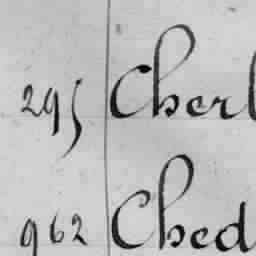 295 Cherl
962 Ched